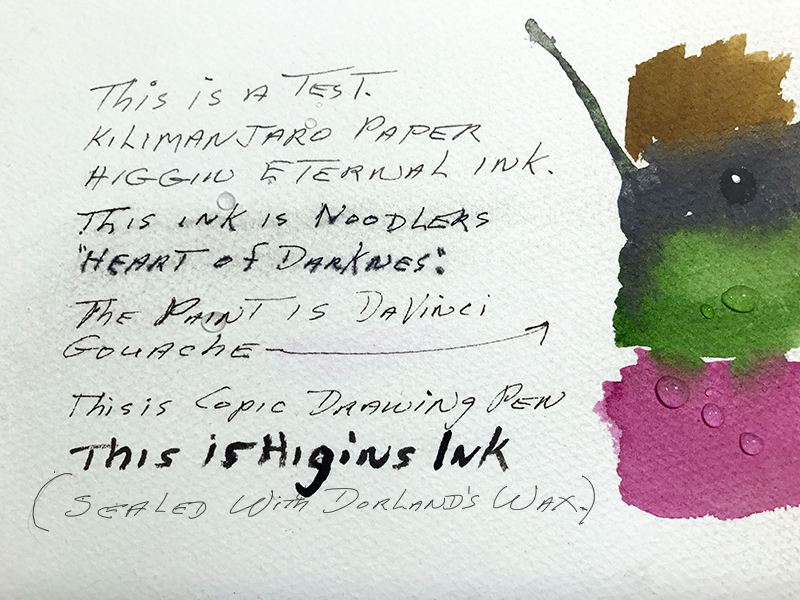 This is a Test.
Kilimanjaro Paper
Higgin Eternal Ink.
This ink is Noodlers
"Heart of Darknes".
The Paint is DaVinci
Gouache
This is Copic Drawing Pen
This is Higins Ink
(Sealed With Dorland's Wax.)